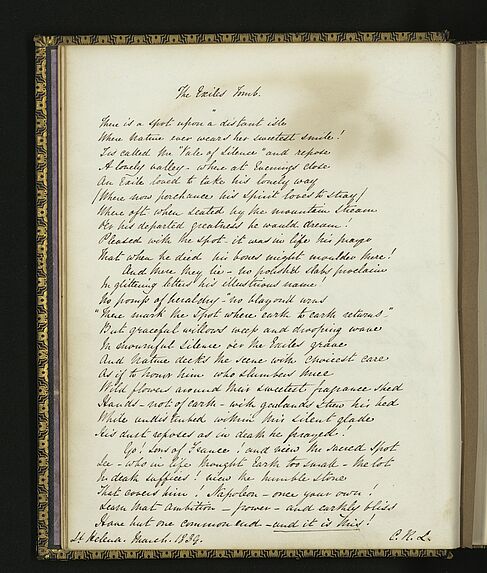 The Exiles Tomb.
There is a spot upon a distant isle
Where Nature ever wears her sweetest smile!
Tis called the "Vale of Silence" and repose
A lonely valley - where at Evenings close
An Exile loved to take his lonely way
(Where now perchance his Spirit loves to stray)
Where oft when seated by the mountain stream
O'er his departed greatness he would dream!
Pleased with the spot it was in life his prayer
That when he died his bones might moulder there!
And there they lie - no polished slabs proclaim
In glittering letters his illustrious name!
No pomp of heraldry - no urns
"There mark the Spot where earth to earth returns."
But graceful willows weep and drooping wave
In mournful Silence o'er the Exiles grave
And Nature decks the scene with choicest care
As if to honor him who slumbers there
Wild flowers around their sweetest fragrance shed
Hands - not of earth - with garlands strew his bed
While undisturbed within this silent glade
His dust reposes as in death he prayed!
Go! Sons of France! and view the sacred Spot
See - who in life thought Earth too small - the lot
In death suffices! view the humble stone
That covers him! Napoleon - once your own!
Learn that ambition - power - and earthly bliss
Have but one common end - and it is this!
St Helena. March. 1839.